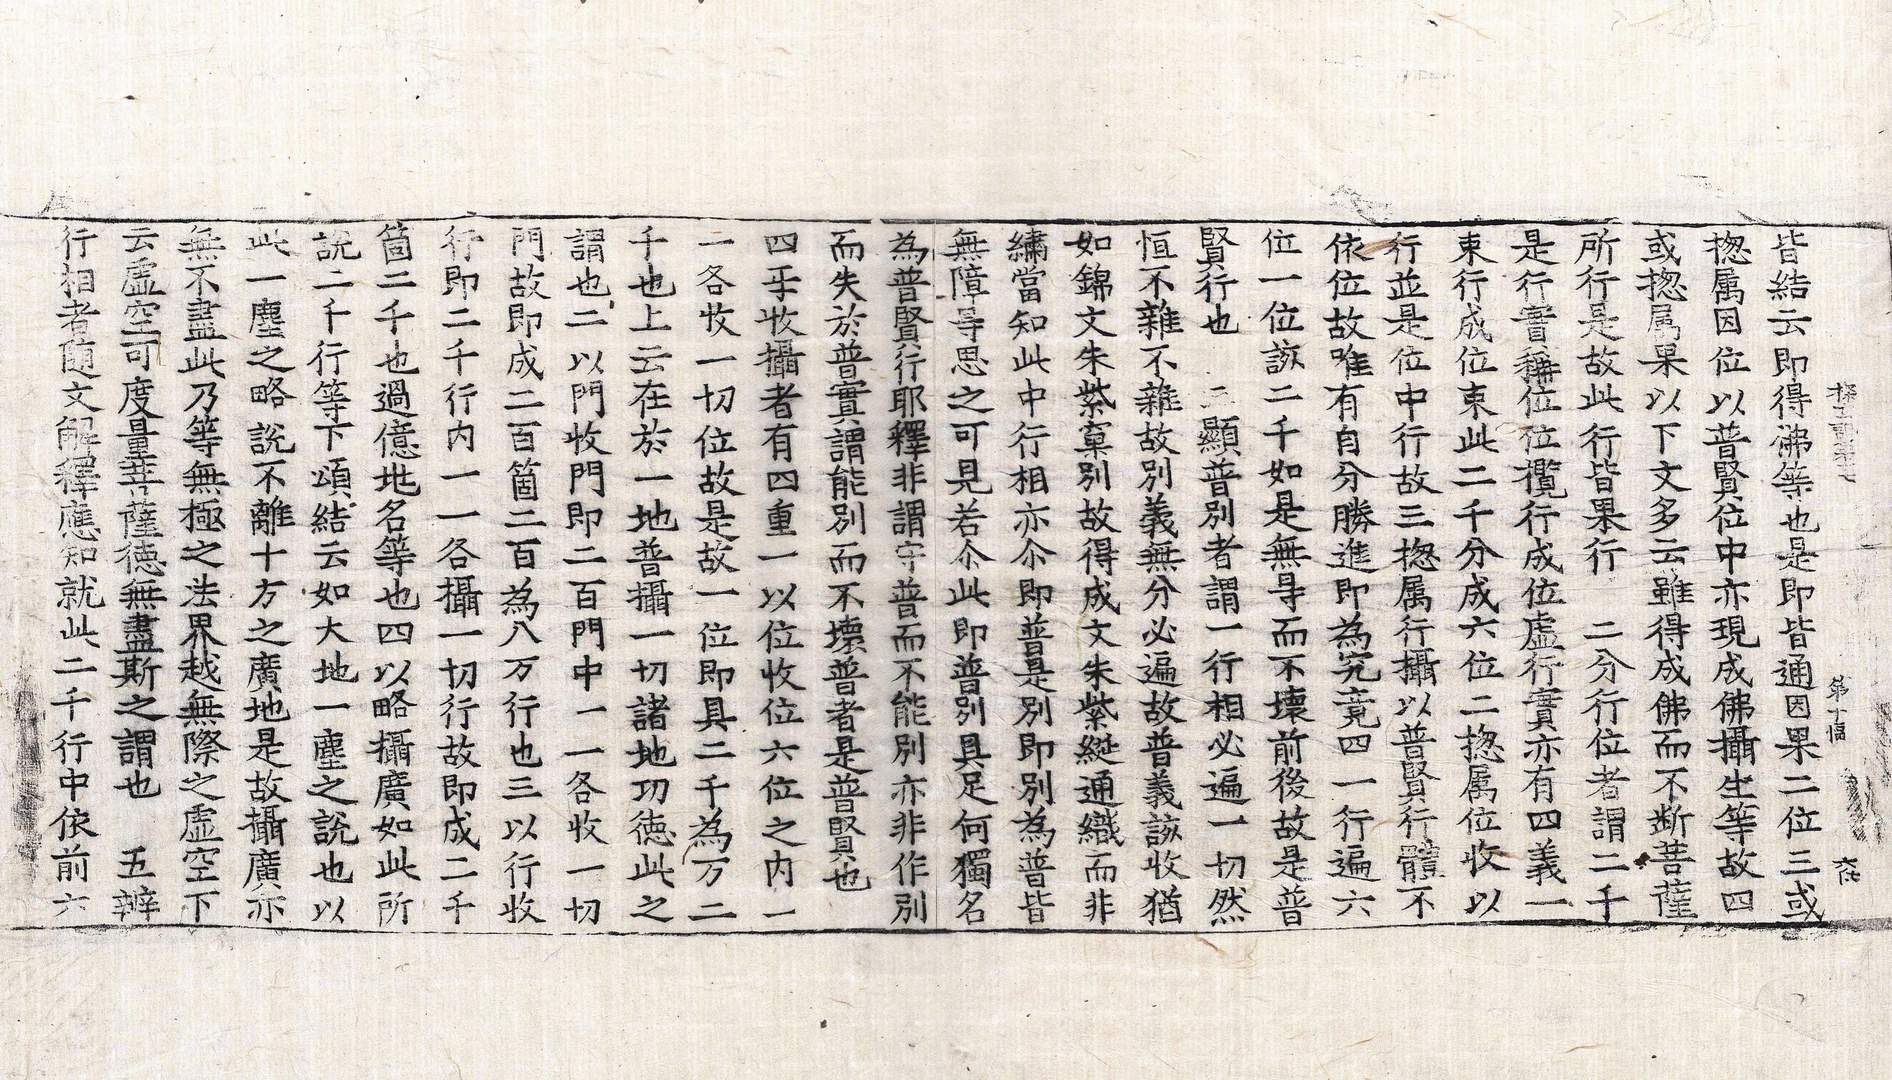 探玄記第十七 第十幅 大伝
皆結云即得佛等也是即皆通因果二位三或
揔属因位以普賢位中亦現成佛攝生等故四
或揔属果以下文多云雖得成佛而不断菩薩
所行是故此行皆果行 二分行位者謂二千
是行實稱位位攬行成位虚行實亦有四義一
束行成位束此二千分成六位二揔属位收以
行並是位中行故三揔属行攝以普賢行體不
依位故唯有自分勝進即為究竟四一行遍六
位一位該二千如是無㝵而不壊前後故是普
賢行也 三顯普別者謂一行相必遍一切然
恒不雜不雜故別義無分必遍故普義該收猶
如錦文朱紫窠別故得成文朱紫綖通織而非
繡當知此中行相亦尒即普是別即別為普皆
無障㝵思之可見若尒此即普別具足何獨名
為普賢行耶釋非謂守普而不能別亦非作別
而失於普實謂能別而不壊普者是普賢也
四㸦收攝者有四重一以位收位六位之内一
一各收一切位故是故一位即具二千為万二
千也上云在於一地普攝一切諸地功徳此之
謂也二以門收門即二百門中一一各收一切
門故即成二百箇二百為八万行也三以行收
行即二千行内一一各攝一切行故即成二千
箇二千也過億地名等也四以略攝廣如此所
說二千行等下頌結云如大地一塵之說也以
此一塵之略說不離十方之廣地是故攝廣亦
無不盡此乃等無極之法界越無際之虚空下
云虚空可度量菩薩徳無盡斯之謂也 五辨
行相者随文解釋應知就此二千行中依前六